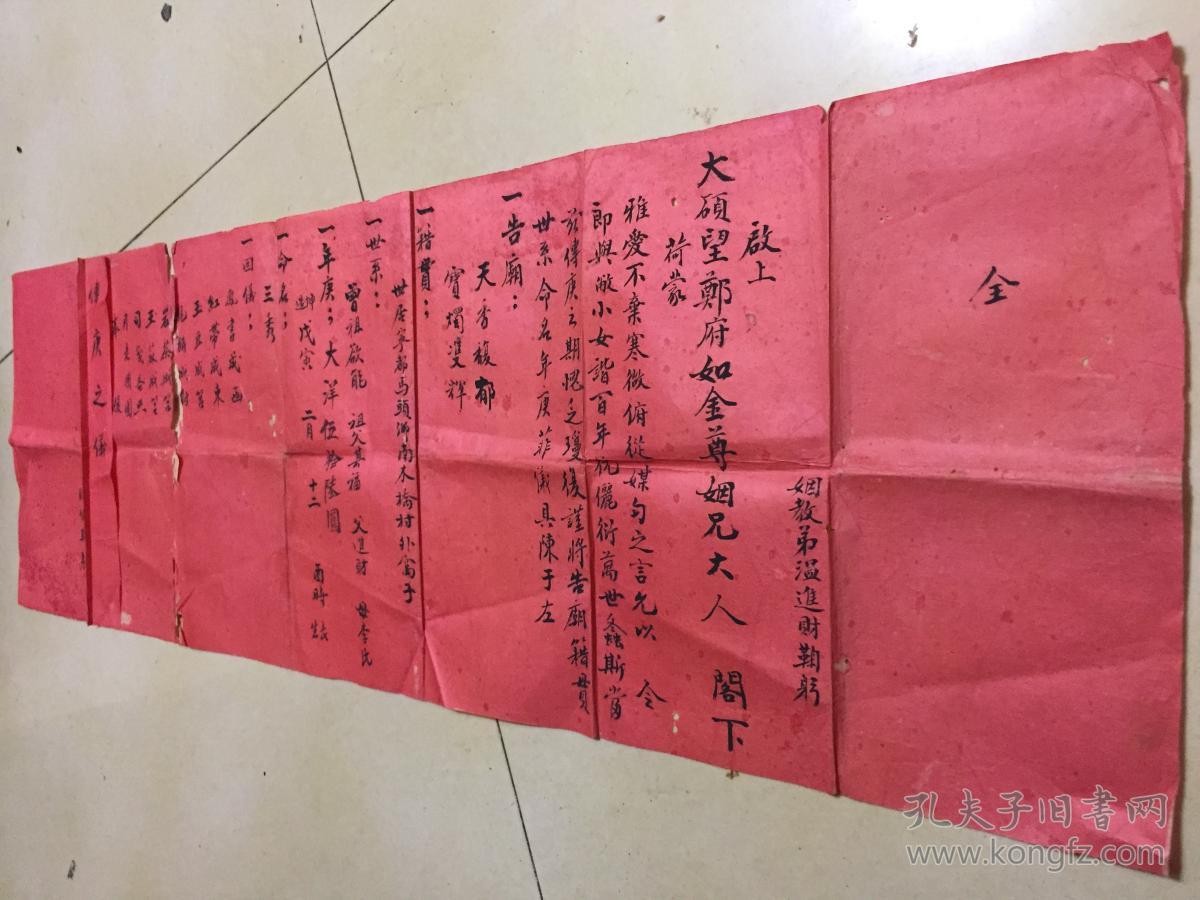 全
姻教弟溫進財鞠躬
啟上
大碩望鄭府如金尊姻兄大人 閣下
荷蒙
雅愛不棄寒微俯從媒勻之言允以 令
郎與敝小女諧百年伉儷衍萬世螽斯當
茲傳庚之期愧乏瓊後謹將告廟籍貫
世系命名年庚菲儀具陳于左
一告廟：
天香馥郁
寶燭雙輝
一籍貫：
世居寧都馬頭鄉南木橋村外富子
一世系：
曾祖欲能 祖父其福 父進財 母李氏
一年庚：大洋伍拾陸圓
坤造戊寅 二月 十二 酉時 生
一命名：
三秀
一回儀：
庚書成函
紅帶成束
傳庚之儀
孔夫子旧書网
www.kongfz.com